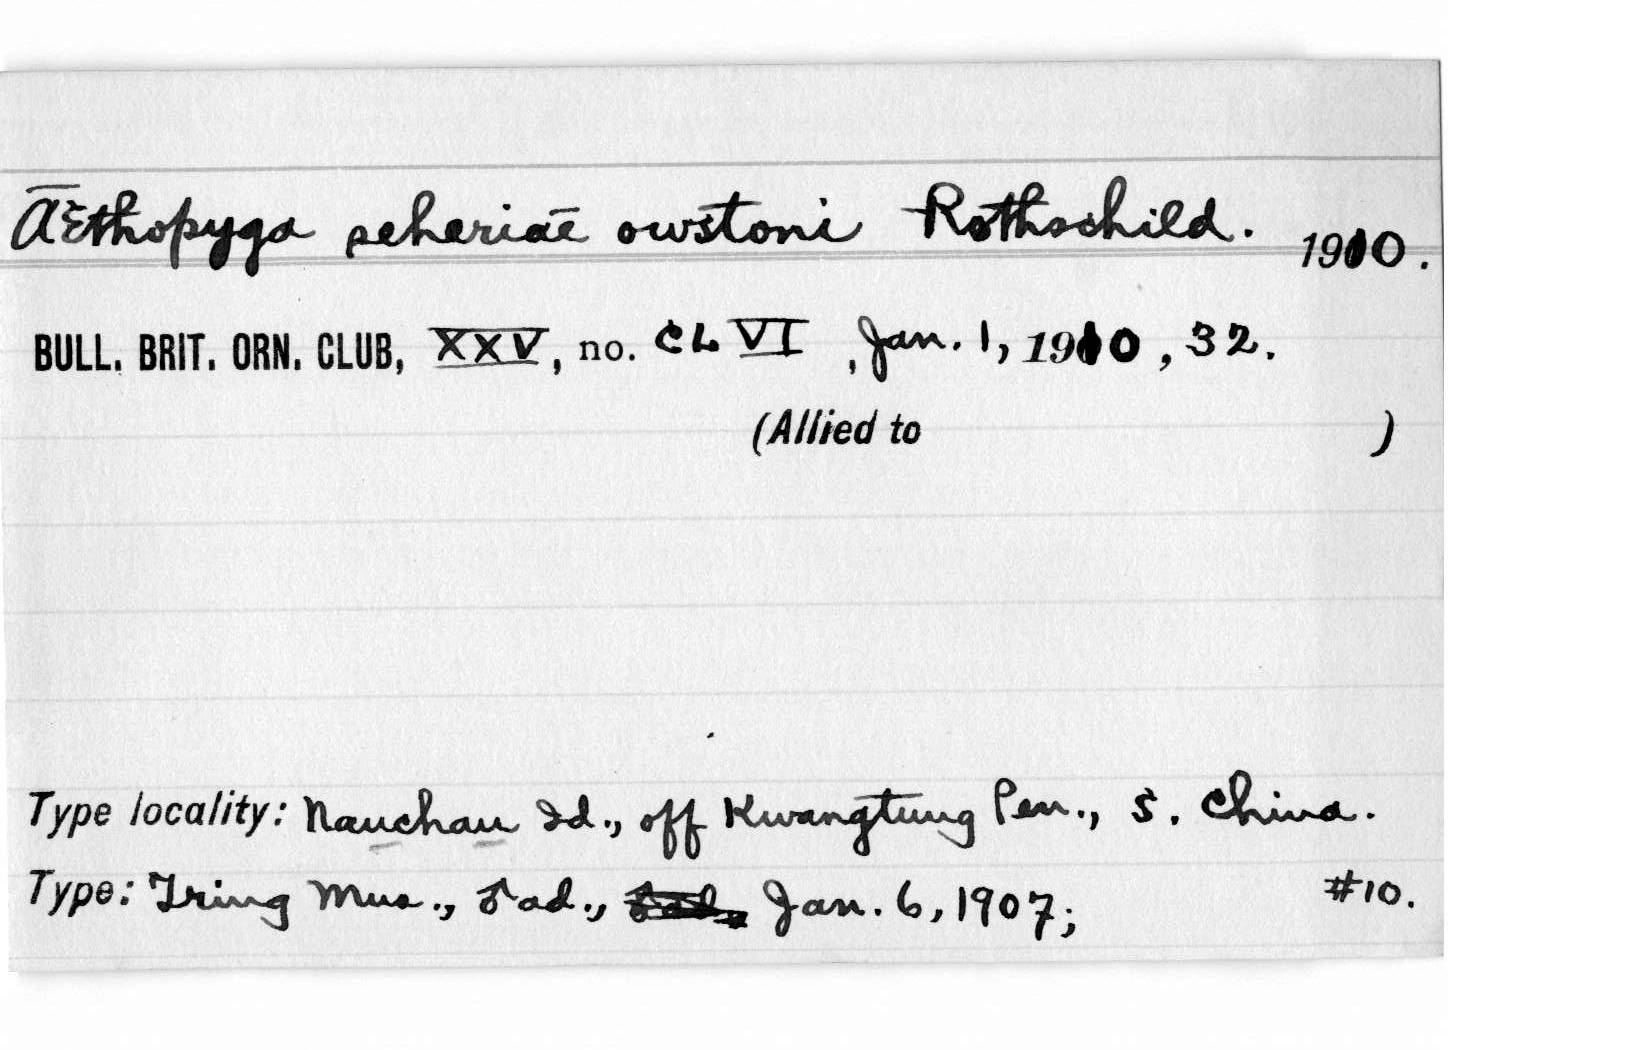 Æthopyga seheriae owstoni Rothschild. 1910.
BULL. BRIT. ORN. CLUB, XXV, no. CLVI, Jan. 1, 1910, 32.
(Allied to )
Type locality: Nauchau Id., off Kwangtung Pen., S. China.
Type: Tring Mus., ♂ ad., Jan. 6, 1907; #10.